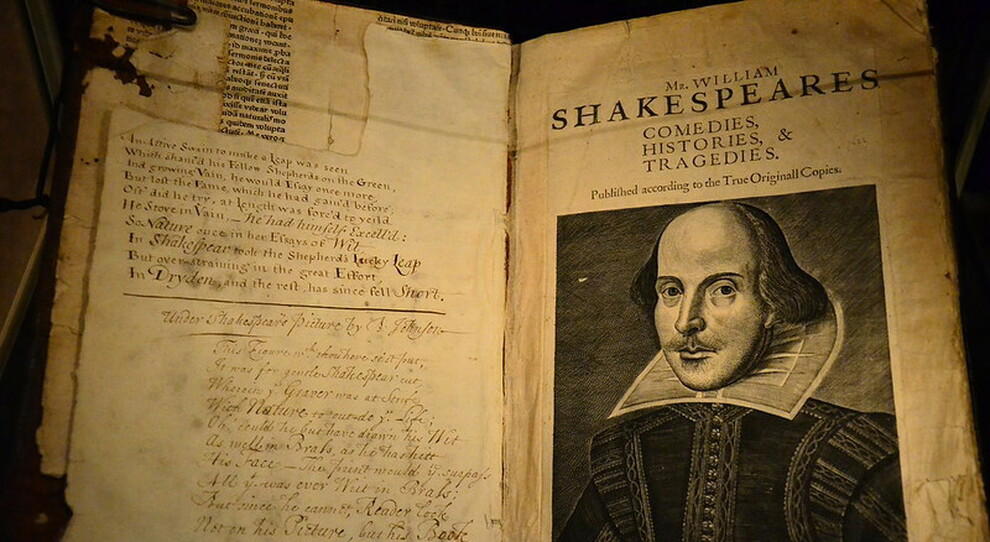 sermonibus
id maxime
qui hoc
vocant
sermonis delecta
senectuti
auditatē auxit
naturalē mo
quibem volupta
An Active Swain to make a Leap was seen
Which sham'd his Fellow Shepherds on the Green,
And growing Vain, he would Essay once more,
But lost the Fame, which he had gain'd before;
Oft' did he try, at length was forc'd to yeild
He Strove in Vain,—he had himself Excell'd:
So Nature once in her Essays of Wit
In Shakespear took the Shepherd's Lucky Leap
But over-straining in the great Effort,
In Dryden, and the rest, has since fell Short.
Under Shakespears Picture by Johnson
This Figure yt. thou here seest put,
It was for gentle Shakespear cut,
Wherein ye Graver was at Strife
With Nature to out-do ye. Life;
Oh, could he but have drawn his Wit
As well in Brass, as he has hitt
His Face — The print would yn. surpass
All yt. was ever Writ in Brass;
But since he cannot, Reader look
Not on his Picture, but his Book
Mr. WILLIAM
SHAKESPEARES
COMEDIES,
HISTORIES, &
TRAGEDIES.
Published according to the True Originall Copies.